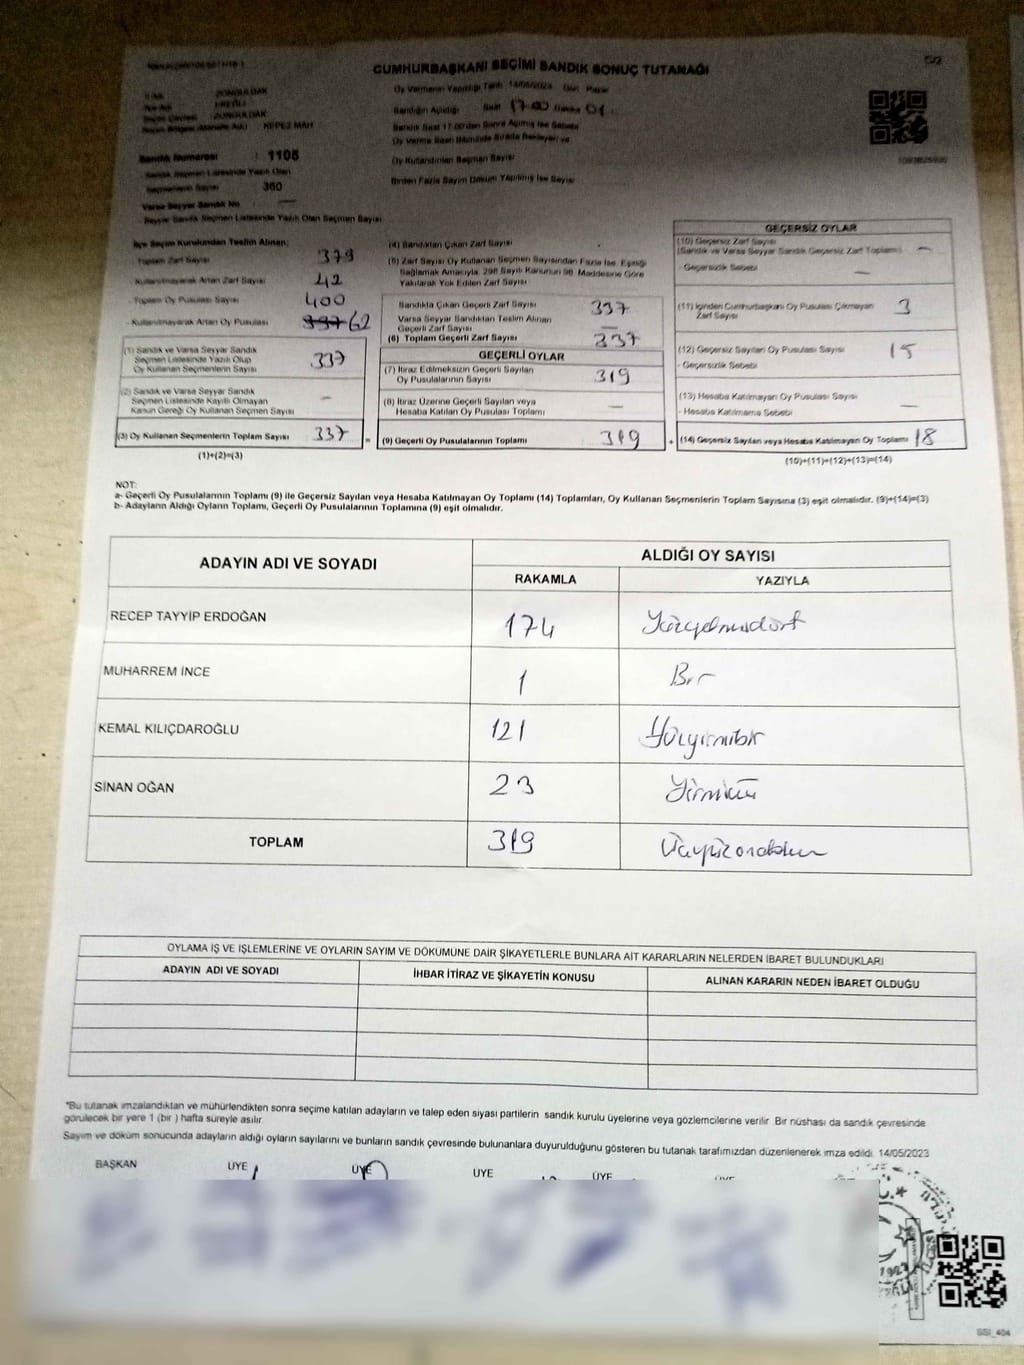 CUMHURBAŞKANI SEÇİMİ SANDIK SONUÇ TUTANAĞI
Oy Vermenin Yapıldığı Tarih 14/05/2023 Gün Pazar
ZONGULDAK
EREĞLİ
Sandığın Açıldığı Saat 17:00 Dakika 01
ZONGULDAK
KEPEZ MAH
Sandık Saat 17.00'den Sonra Açılmış İse Sebebi
Sandık Numarası : 1108
Oy Kullandırılan Seçmen Sayısı
Sandık Seçmen Listesinde Yazılı Olan
Seçmenlerin Sayısı : 360
Birden Fazla Sayım Döküm Yapılmış İse Sayısı
Varsa Seyyar Sandık No : —
Seyyar Sandık Seçmen Listesinde Yazılı Olan Seçmen Sayısı
İlçe Seçim Kurulundan Teslim Alınan;
- Toplam Zarf Sayısı 379
- Kullanılmayarak Artan Zarf Sayısı 42
- Toplam Oy Pusulası Sayısı 400
- Kullanılmayarak Artan Oy Pusulası 337 62
(1) Sandık ve Varsa Seyyar Sandık
Seçmen Listesinde Yazılı Olup
Oy Kullanan Seçmenlerin Sayısı 337
(2) Sandık ve Varsa Seyyar Sandık
Seçmen Listesinde Kayıtlı Olmayan
Kanun Gereği Oy Kullanan Seçmen Sayısı –
(3) Oy Kullanan Seçmenlerin Toplam Sayısı 337 =
(1)+(2)=(3)
(4) Sandıktan Çıkan Zarf Sayısı
(5) Zarf Sayısı Oy Kullanan Seçmen Sayısından Fazla İse, Eşitliği
Sağlamak Amacıyla, 298 Sayılı Kanunun 98. Maddesine Göre
Yakılarak Yok Edilen Zarf Sayısı
Sandıkta Çıkan Geçerli Zarf Sayısı 337
Varsa Seyyar Sandıktan Teslim Alınan
Geçerli Zarf Sayısı —
(6) Toplam Geçerli Zarf Sayısı 337
GEÇERLİ OYLAR
(7) İtiraz Edilmeksizin Geçerli Sayılan
Oy Pusulalarının Sayısı 319
(8) İtiraz Üzerine Geçerli Sayılan veya
Hesaba Katılan Oy Pusulası Toplamı —
(9) Geçerli Oy Pusulalarının Toplamı 319 +
GEÇERSİZ OYLAR
(10) Geçersiz Zarf Sayısı
(Sandık ve Varsa Seyyar Sandık Geçersiz Zarf Toplamı) —
- Geçersizlik Sebebi —
(11) İçinden Cumhurbaşkanı Oy Pusulası Çıkmayan
Zarf Sayısı 3
(12) Geçersiz Sayılan Oy Pusulası Sayısı 15
- Geçersizlik Sebebi
(13) Hesaba Katılmayan Oy Pusulası Sayısı
- Hesaba Katılmama Sebebi —
(14) Geçersiz Sayılan veya Hesaba Katılmayan Oy Toplamı 18
(10)+(11)+(12)+(13)=(14)
NOT:
a- Geçerli Oy Pusulalarının Toplamı (9) ile Geçersiz Sayılan veya Hesaba Katılmayan Oy Toplamı (14) Toplamları, Oy Kullanan Seçmenlerin Toplam Sayısına (3) eşit olmalıdır. (9)+(14)=(3)
b- Adayların Aldığı Oyların Toplamı, Geçerli Oy Pusulalarının Toplamına (9) eşit olmalıdır.
ADAYIN ADI VE SOYADI
ALDIĞI OY SAYISI
RAKAMLA YAZIYLA
RECEP TAYYİP ERDOĞAN 174 Yüzyetmişdört
MUHARREM İNCE 1 Bir
KEMAL KILIÇDAROĞLU 121 Yüzyirmibir
SİNAN OĞAN 23 Yirmiüç
TOPLAM 319 Üçyüzondokuz
OYLAMA İŞ VE İŞLEMLERİNE VE OYLARIN SAYIM VE DÖKÜMÜNE DAİR ŞİKAYETLERLE BUNLARA AİT KARARLARIN NELERDEN İBARET BULUNDUKLARI
ADAYIN ADI VE SOYADI İHBAR İTİRAZ VE ŞİKAYETİN KONUSU ALINAN KARARIN NEDEN İBARET OLDUĞU
"Bu tutanak imzalandıktan ve mühürlendikten sonra seçime katılan adayların ve talep eden siyasi partilerin sandık kurulu üyelerine veya gözlemcilerine verilir. Bir nüshası da sandık çevresinde
görülecek bir yere 1 (bir ) hafta süreyle asılır.
Sayım ve döküm sonucunda adayların aldığı oyların sayılarını ve bunların sandık çevresinde bulunanlara duyurulduğunu gösteren bu tutanak tarafımızdan düzenlenerek imza edildi. 14/05/2023
BAŞKAN ÜYE ÜYE ÜYE ÜYE
SSI_404